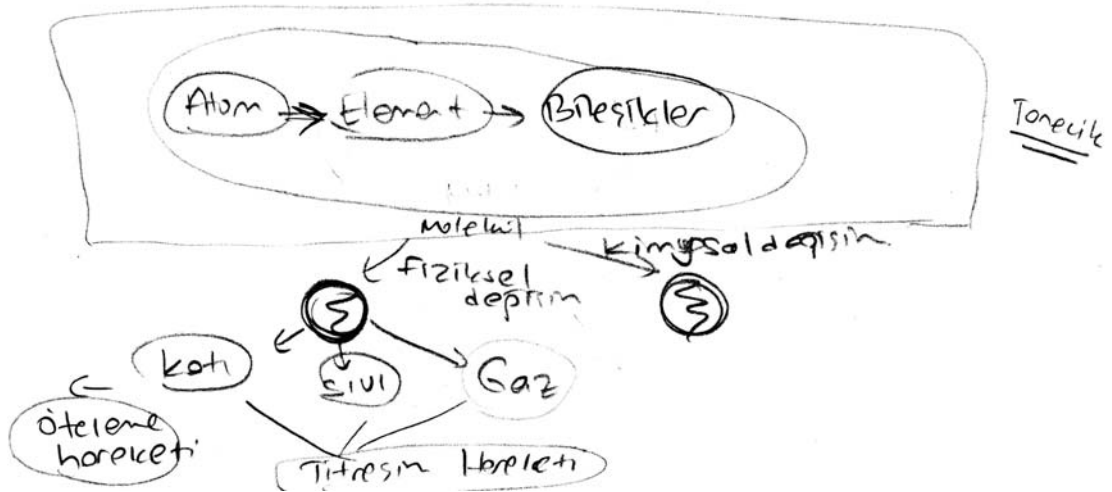 Atom Element Bileşikler
Tanecik
Molekül
kimyasal değişim
fiziksel
değişim
katı
sıvı
Gaz
öteleme
hareketi
Titreşim Hareketi